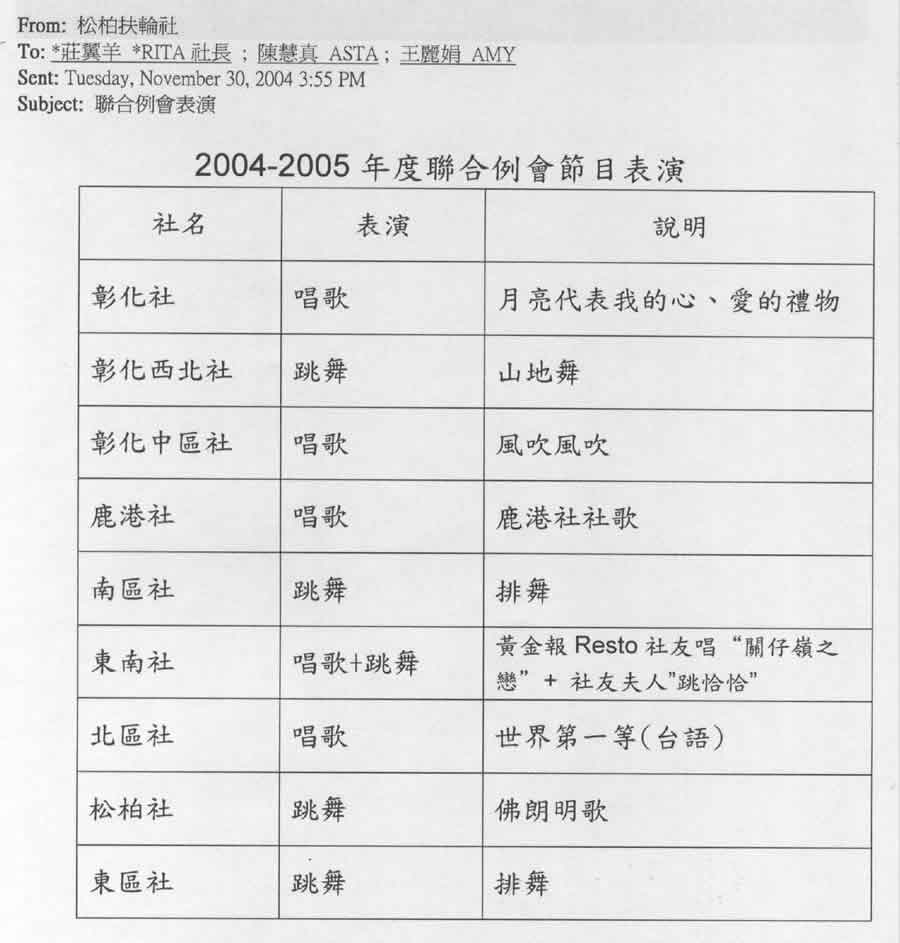 From: 松柏扶輪社
To: *莊翼羊 *RITA 社長 ; 陳慧真 ASTA ; 王麗娟 AMY
Sent: Tuesday, November 30, 2004 3:55 PM
Subject: 聯合例會表演
2004-2005 年度聯合例會節目表演
社名 表演 說明
彰化社 唱歌 月亮代表我的心、愛的禮物
彰化西北社 跳舞 山地舞
彰化中區社 唱歌 風吹風吹
鹿港社 唱歌 鹿港社社歌
南區社 跳舞 排舞
東南社 唱歌+跳舞 黃金報 Resto 社友唱 “關仔嶺之
戀” + 社友夫人"跳恰恰"
北區社 唱歌 世界第一等(台語)
松柏社 跳舞 佛朗明歌
東區社 跳舞 排舞